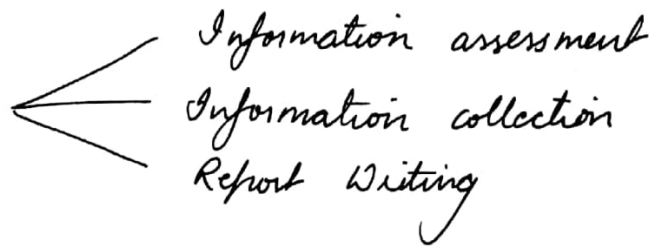 Information assessment
Information collection
Report Writing